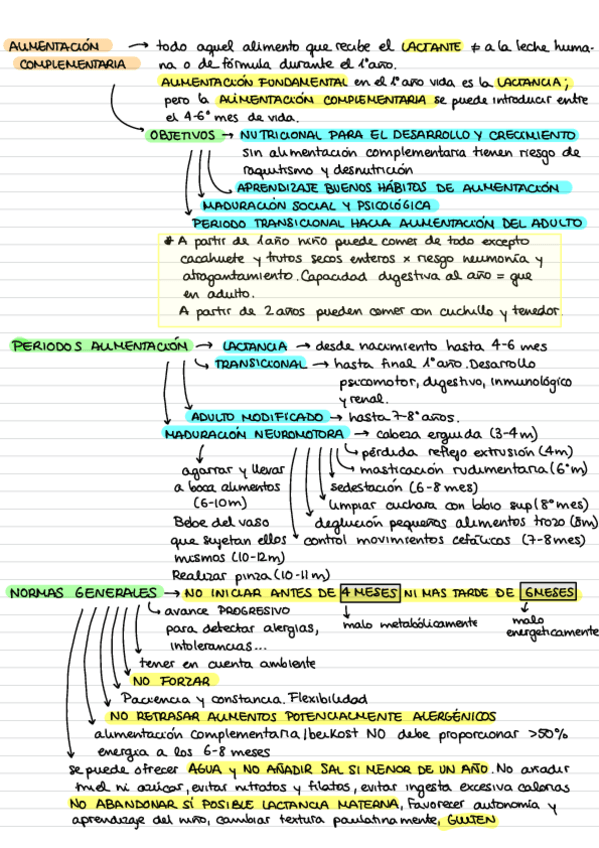 ALIMENTACIÓN → todo aquel alimento que recibe el LACTANTE ≠ a la leche huma-
COMPLEMENTARIA na o de fórmula durante el 1º año.
ALIMENTACIÓN FUNDAMENTAL en el 1º año vida es la LACTANCIA;
pero la ALIMENTACIÓN COMPLEMENTARIA se puede introducir entre
el 4-6º mes de vida.
OBJETIVOS → NUTRICIONAL PARA EL DESARROLLO Y CRECIMIENTO
Sin alimentación complementaria tienen riesgo de
raquitismo y desnutrición
APRENDIZAJE BUENOS HÁBITOS DE ALIMENTACIÓN
MADURACIÓN SOCIAL Y PSICOLÓGICA
PERIODO TRANSICIONAL HACIA ALIMENTACIÓN DEL ADULTO
* A partir de 1 año niño puede comer de todo excepto
cacahuete y frutos secos enteros x riesgo neumonía y
atragantamiento. Capacidad digestiva al año = que
en adulto.
A partir de 2 años pueden comer con cuchillo y tenedor.
PERIODOS ALIMENTACIÓN → LACTANCIA → desde nacimiento hasta 4-6 mes
TRANSICIONAL → hasta final 1º año. Desarrollo
psicomotor, digestivo, inmunológico
y renal.
ADULTO MODIFICADO → hasta 7-8º años.
MADURACIÓN NEUROMOTORA → cabeza erguida (3-4m)
pérdida reflejo extrusión (4m)
agarrar y llevar masticación rudimentaria (6ºm)
a boca alimentos sedestación (6-8 mes)
(6-10m) limpiar cuchara con labio sup (8º mes)
Bebe del vaso deglución pequeños alimentos trozo (8m)
que sujetan ellos control movimientos cefálicos (7-8mes)
mismos (10-12m)
Realizar pinza (10-11m)
NORMAS GENERALES → NO INICIAR ANTES DE 4 MESES NI MAS TARDE DE 6 MESES
avance PROGRESIVO
para detectar alergias, malo metabólicamente malo
intolerancias... energeticamente
tener en cuenta ambiente
NO FORZAR
Paciencia y constancia. Flexibilidad
NO RETRASAR ALIMENTOS POTENCIALMENTE ALERGÉNICOS
alimentación complementaria/beikost NO debe proporcionar >50%
energia a los 6-8 meses
se puede ofrecer AGUA y NO AÑADIR SAL SI MENOR DE UN AÑO. No añadir
miel ni azúcar, evitar nitratos y filatos, evitar ingesta excesiva calorías
NO ABANDONAR SÍ POSIBLE LACTANCIA MATERNA, Favorecer autonomía y
aprendizaje del niño, cambiar textura paulatinamente, GLUTEN